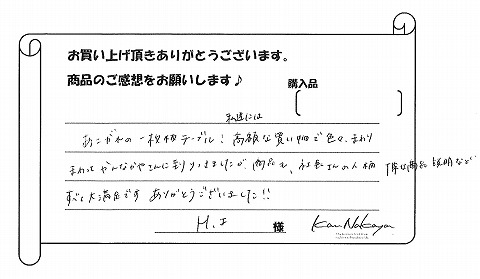 お買い上げ頂きありがとうございます。
商品のご感想をお願いします♪
購入品
私達には
あこがれの一枚板テーブル！高額な買い物で色々、まわり
まわって かんなかやさんに到りつきましたが、商品も、社長さんの人柄
すごく大満足です ありがとうございました!!
H.I 様
KanNakaya